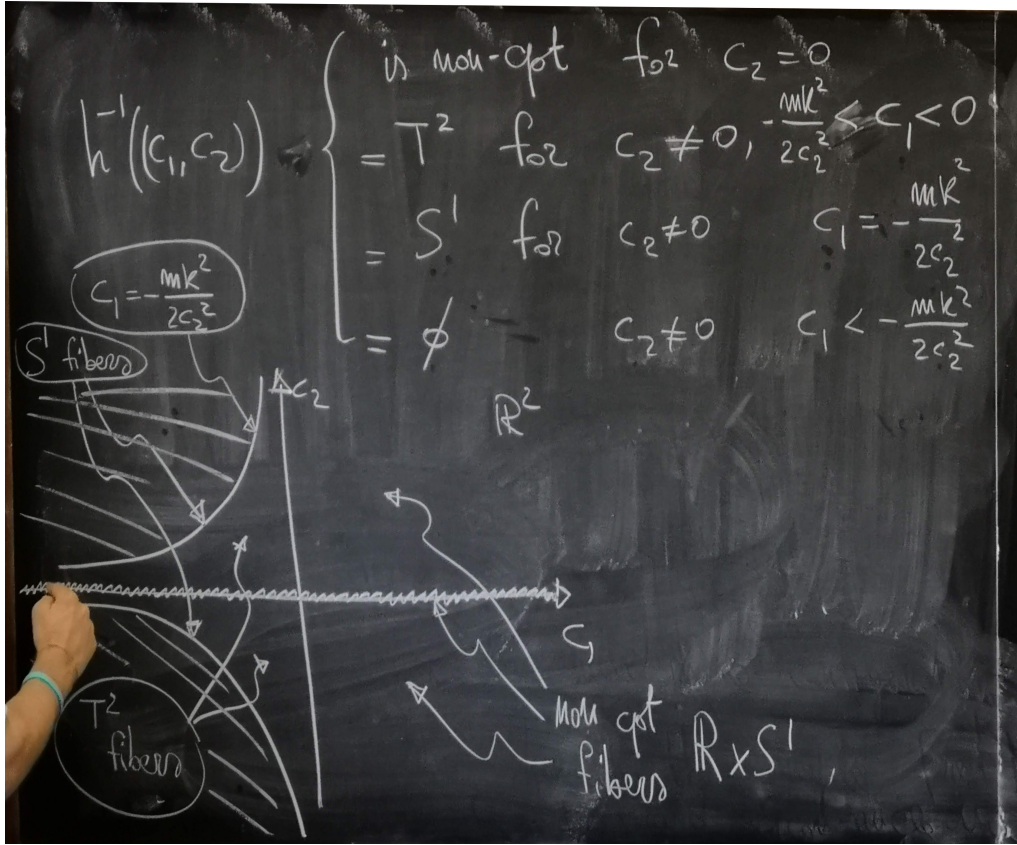 is non-cpt for c₂ = 0
h⁻¹((c₁, c₂))
= T² for c₂ ≠ 0, -mk²/2c₂² < c₁ < 0
= S¹ for c₂ ≠ 0 c₁ = -mk²/2c₂²
= ϕ c₂ ≠ 0 c₁ < -mk²/2c₂²
c₁ = -mk²/2c₂²
S¹ fibers
c₂
ℝ²
c₁
T²
fibers
non cpt
fibers ℝ×S¹,